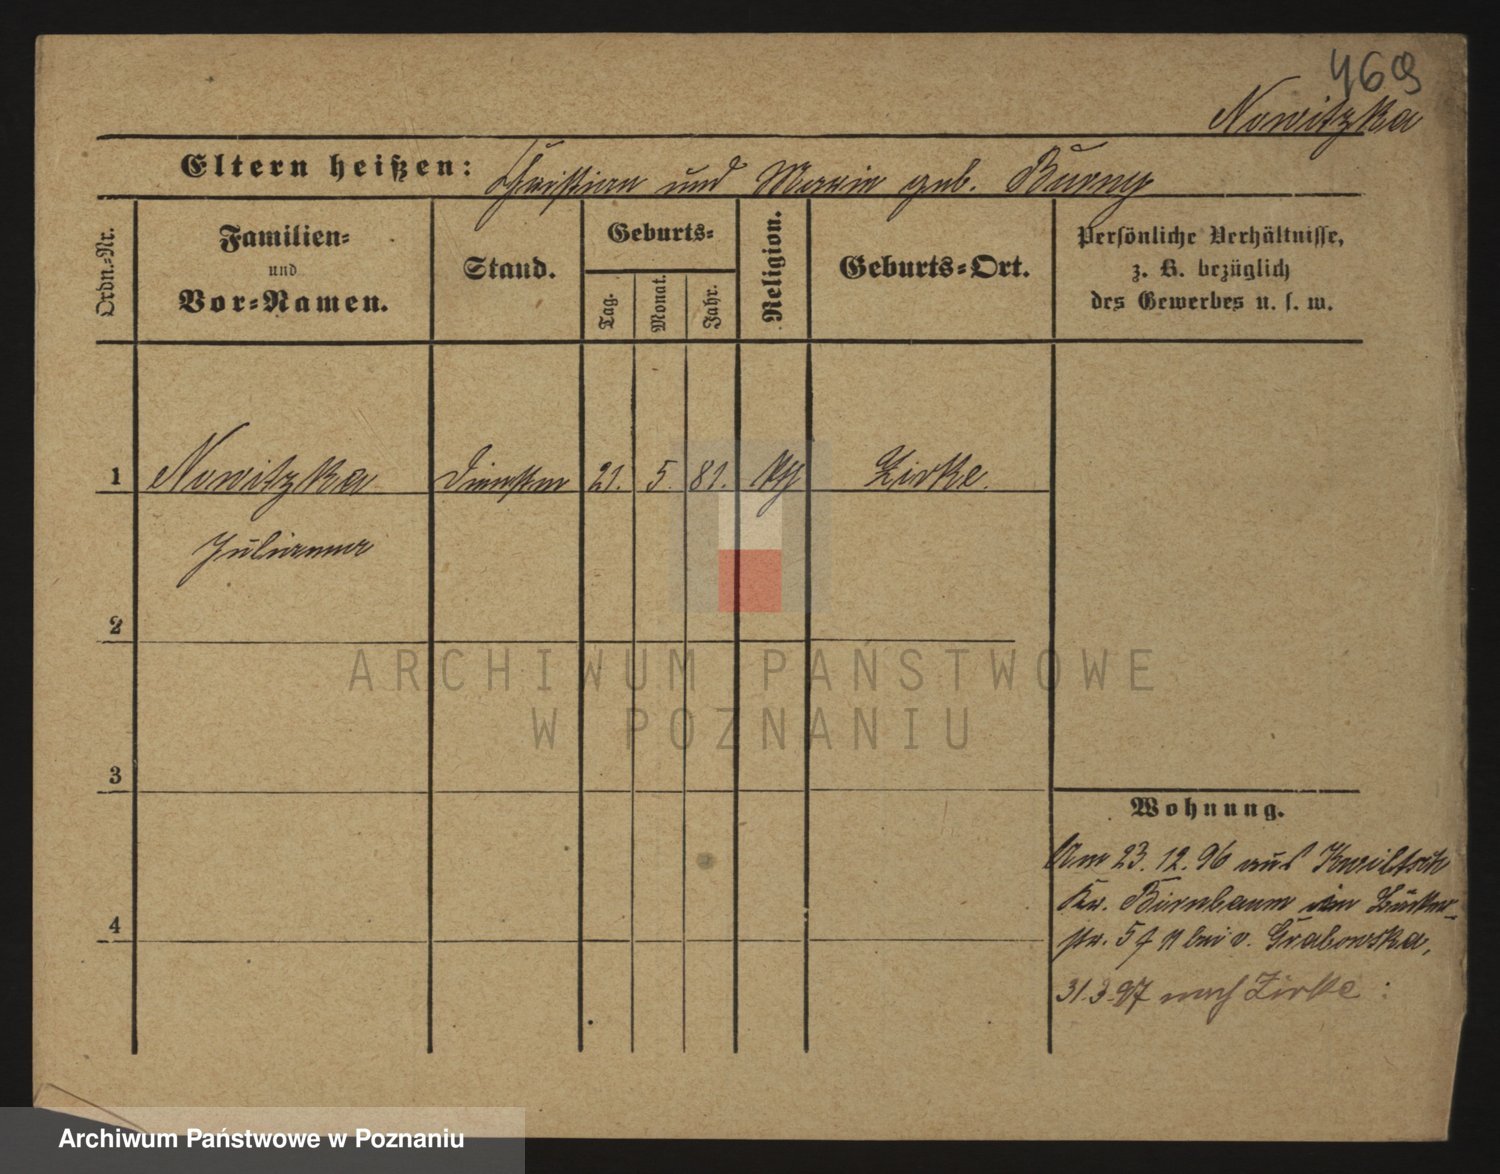 469
Nowitzka
Eltern heißen: Christian und Marie geb. Burny
Ordn.-Nr.
Familien-
und
Vor-Namen.
Stand.
Geburts-
Tag.
Monat.
Jahr.
Religion.
Geburts-Ort.
Persönliche Verhältnisse,
z. B. bezüglich
des Gewerbes u. s. w.
1 Nowitzka 21. 5. 81. Zirke.
Julianna
2
3
4
ARCHIWUM PAŃSTWOWE
W POZNANIU
Wohnung.
Am 23. 12. 96 aus Kwiltsch
Kr. Birnbaum in
str. 5 bei v. Grabowska,
31.3.97 nach Zirke:
Archiwum Państwowe w Poznaniu